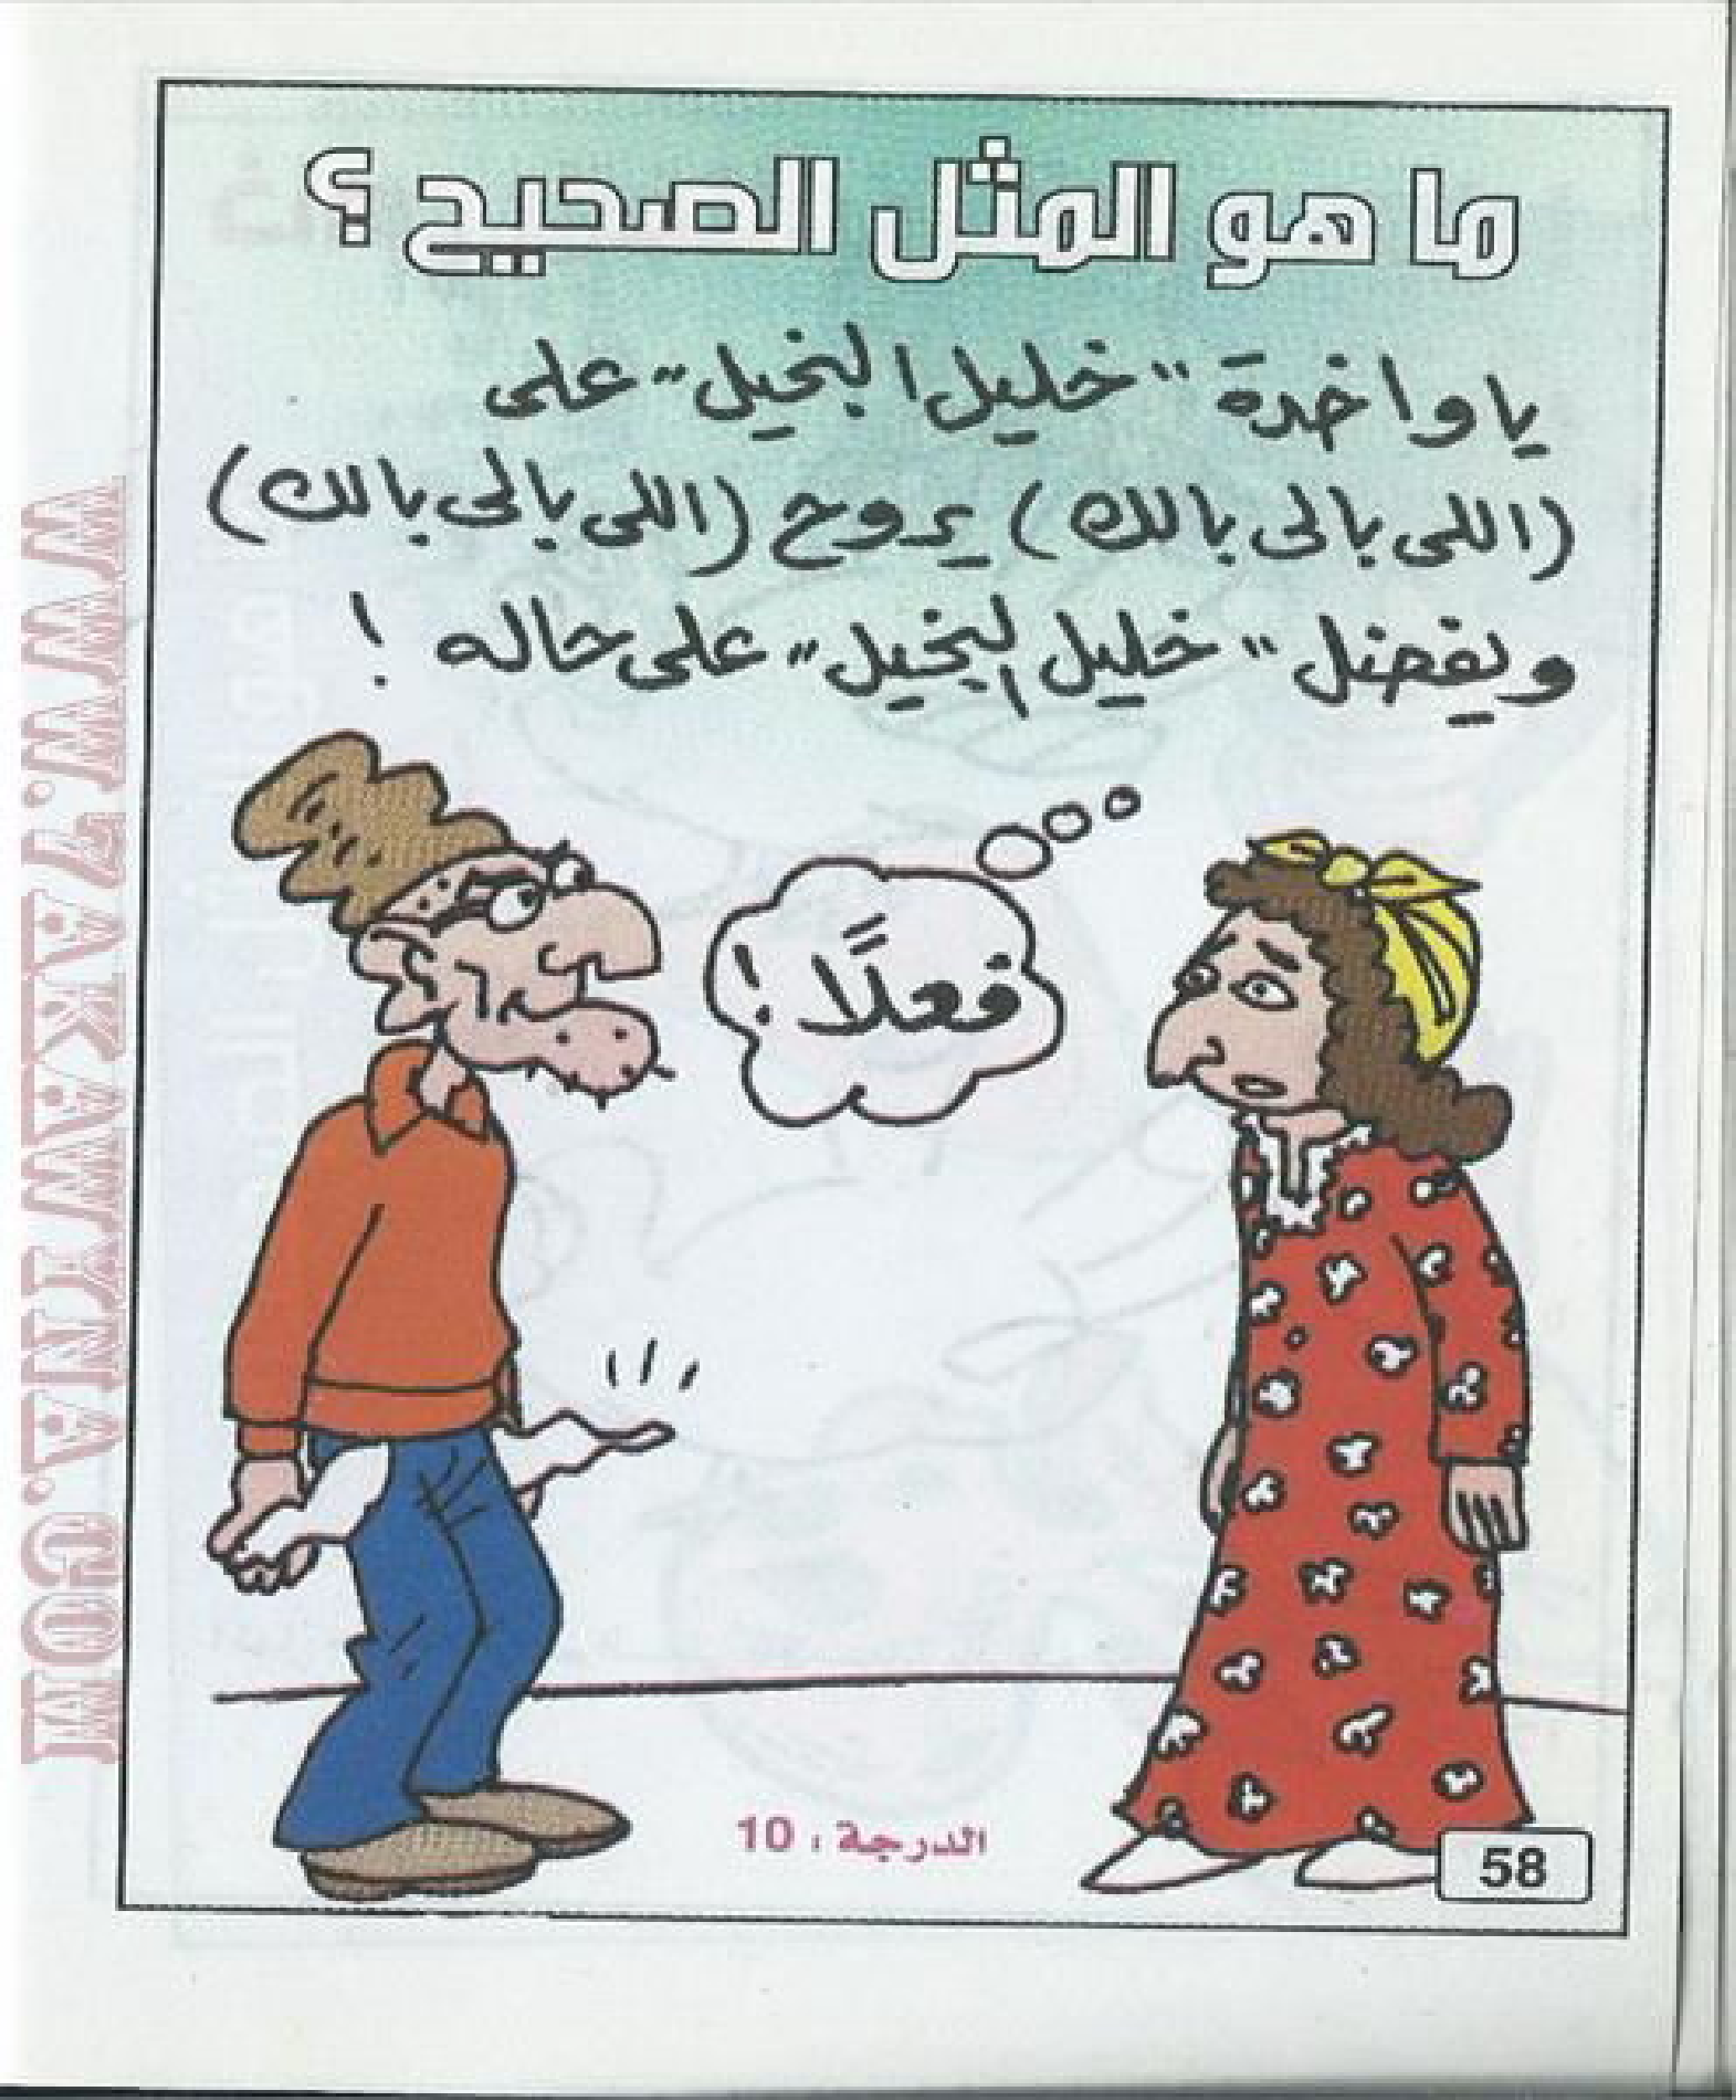 ما هو المثل الصحيح ؟
يا واخدة "خليل البخيل" على
(اللى بالى بالك) يروح (اللى بالى بالك)
ويفضل "خليل البخيل" على حاله !
فعلًا !
الدرجة : 10
58
WWW.7AKAWITNA.COM